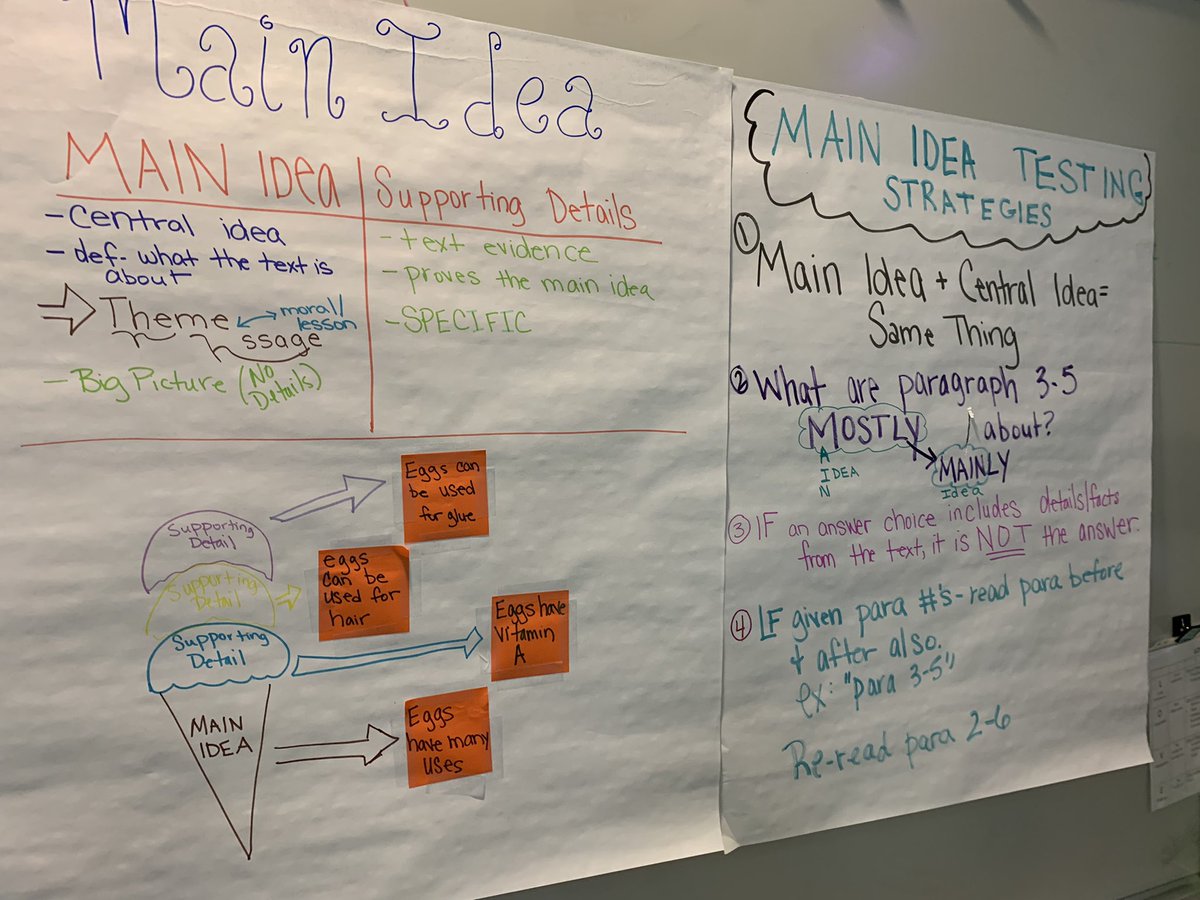 Main Idea
MAIN Idea
- Central idea
- def- what the text is
about
Theme
moral/
lesson
ssage
- Big Picture (No
Details)
Supporting Details
- text evidence
- proves the main idea
- SPECIFIC
Supporting
Detail
Supporting
Detail
Supporting
Detail
MAIN
IDEA
Eggs can
be used
for glue
eggs
can be
used for
hair
Eggs have
vitamin
A
Eggs
have many
uses
MAIN IDEA TESTING
STRATEGIES
① Main Idea + Central Idea=
Same Thing
② What are paragraph 3-5
MOSTLY about?
A
I IDEA
N
MAINLY
Idea
③ IF an answer choice includes details/facts
from the text, it is NOT the answer.
④ IF given para #'s - read para before
+ after also.
ex: "para 3-5"
Re-read para 2-6